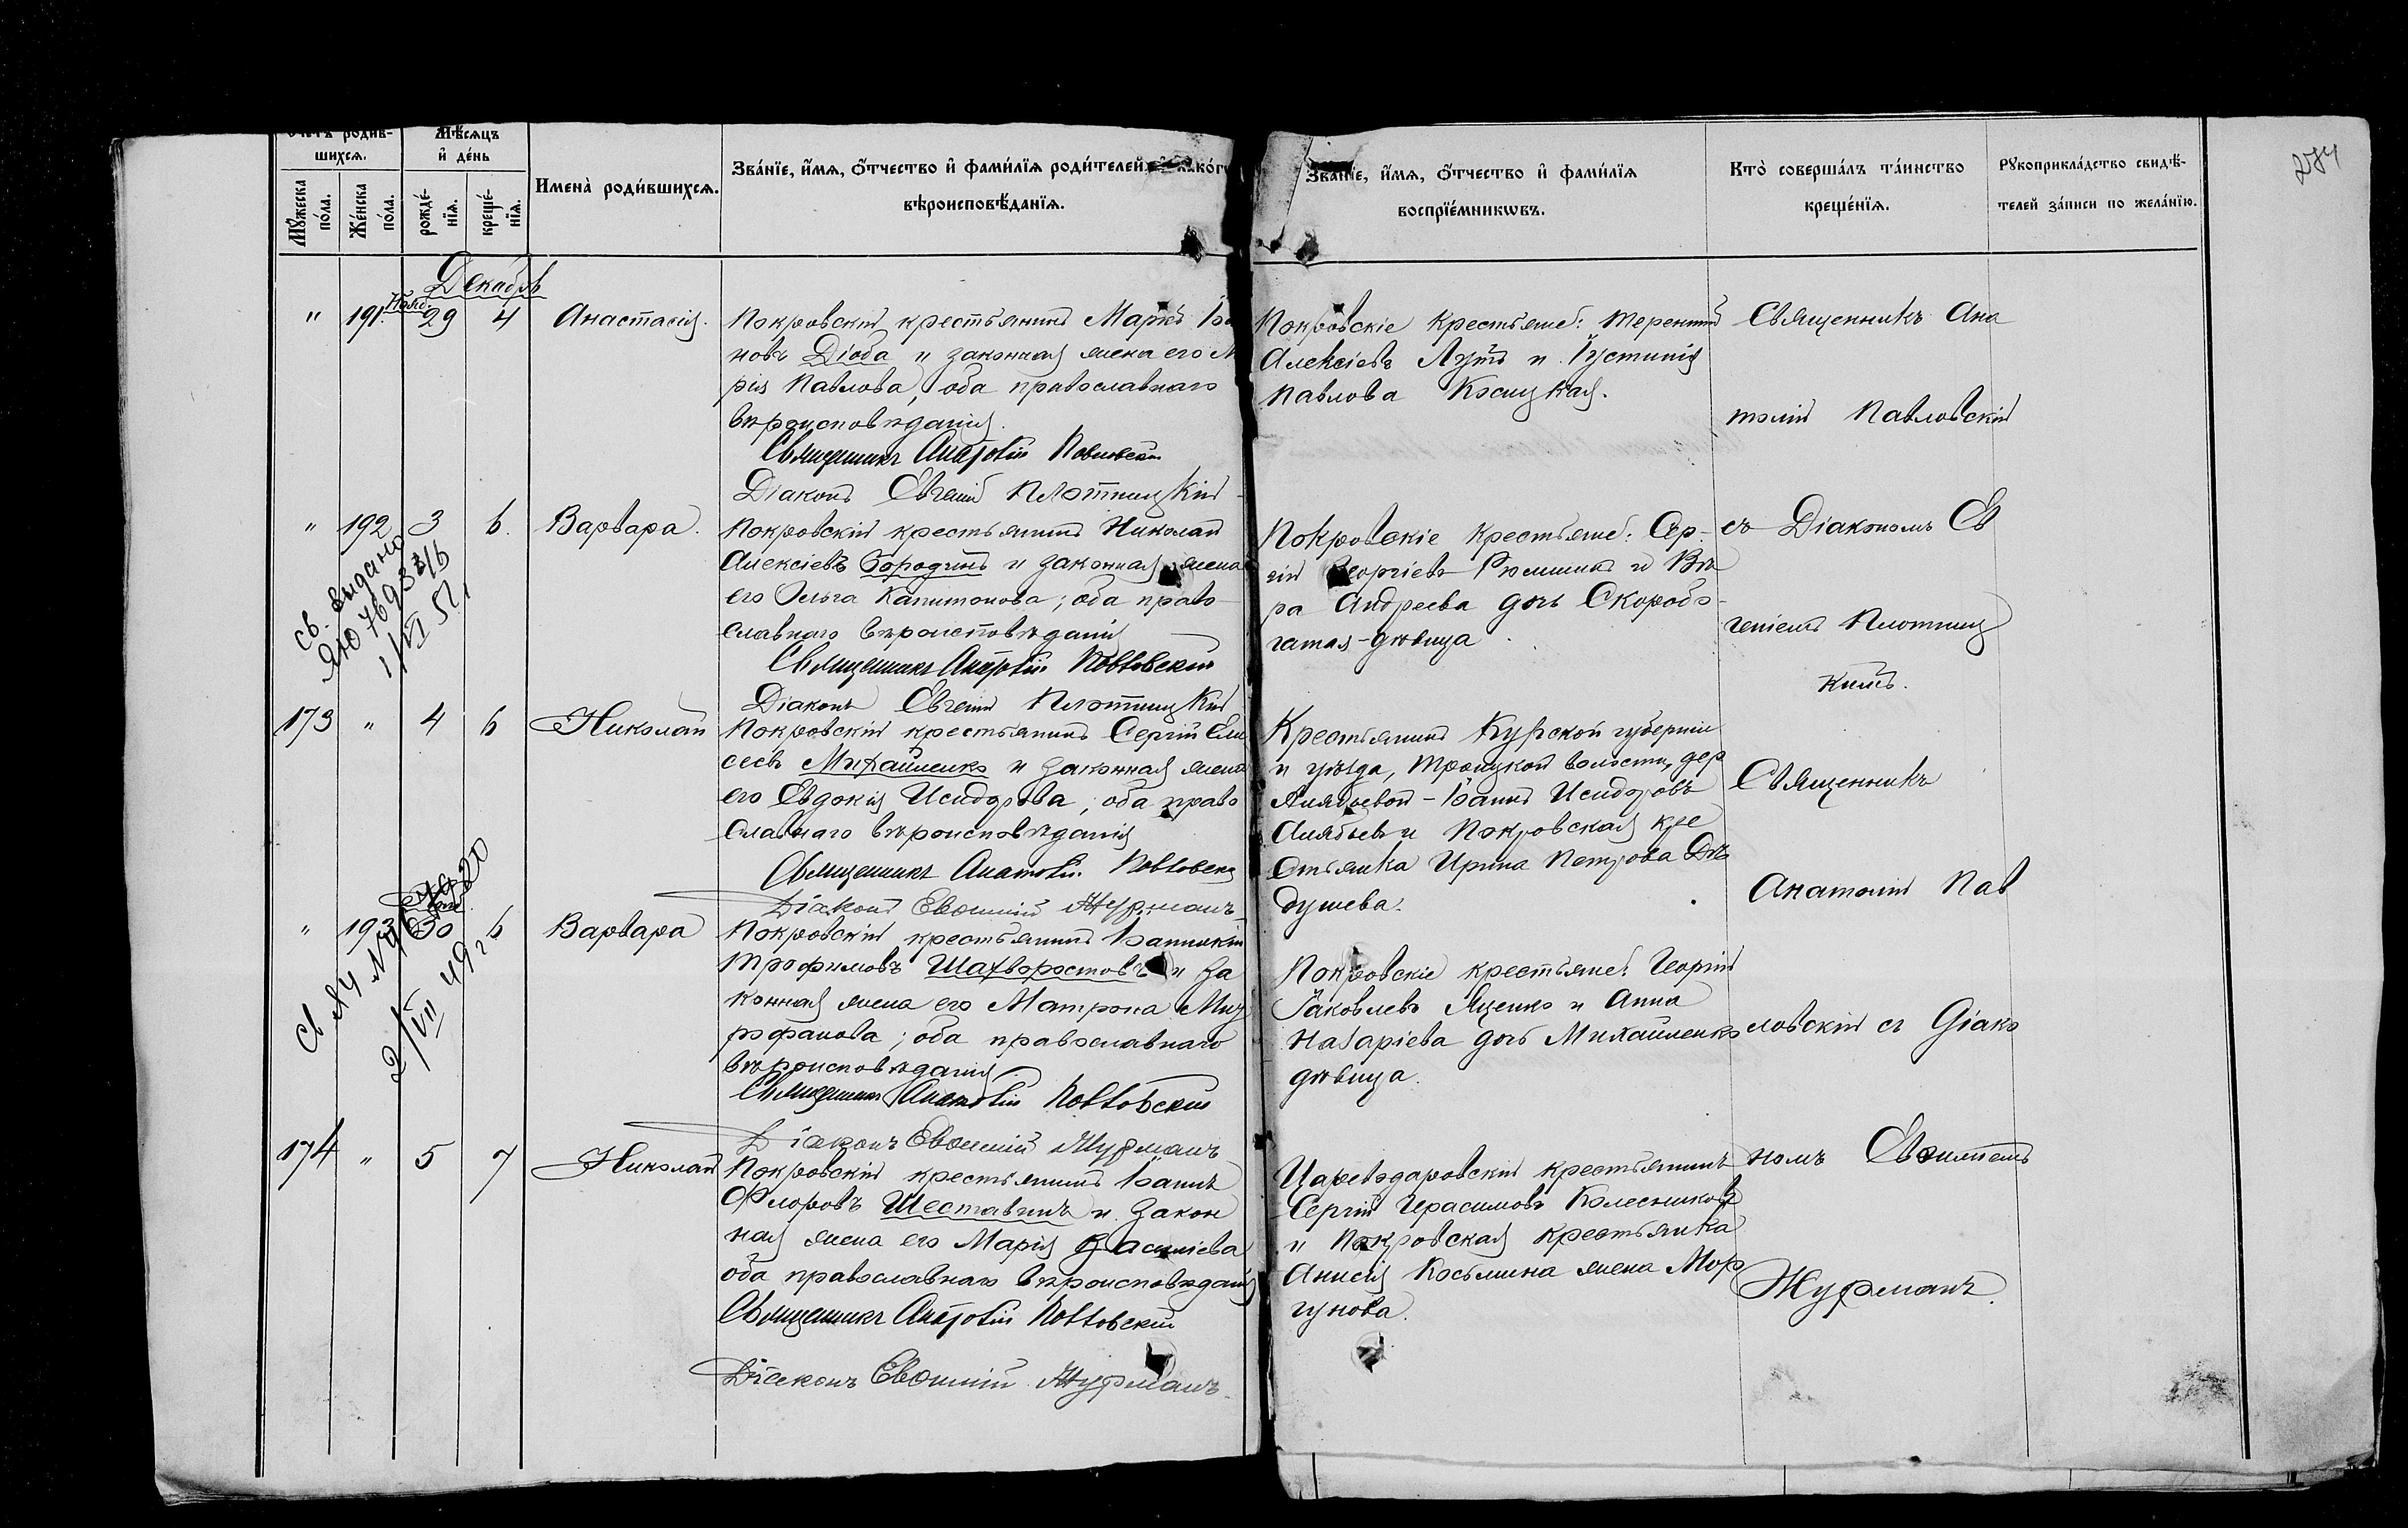 284
Счетъ родив-
шихся.
Мѣсяцъ
и день
Мужеска
пола.
Женска
пола.
рожде-
нія.
креще-
нія.
Имена родившихся.
Званіе, имя, отчество и фамилія родителей, и какого
вѣроисповѣданія.
Званіе, имя, отчество и фамилія
воспріемниковъ.
Кто совершалъ таинство
крещенія.
Рукоприкладство свидѣ-
телей записи по желанію.
Декабрь
" 191. Нояб. 29 4 Анастасія.
Покровскій крестьянинъ Маркъ Іва
новъ Діоба и законная жена его М
рія Павлова, оба православнаго
вѣроисповѣданія.
Священникъ Анатолій Павловскій
Діаконъ Евгеній Плотницкій
Покровскіе крестьяне: Терентій
Алексіевъ Лутъ и Іустинія
Павлова Косицкая.
Священникъ Ана
толій Павловскій
" 192 3 6. Варвара.
св. выдано
ЯЮ 769376
1/VI 51 г
Покровскій крестьянинъ Николай
Алексіевъ Бородинъ и законная жена
его Ольга Капитонова; оба право-
славнаго вѣроисповѣданія
Священникъ Анатолій Павловскій
Діаконъ Евгеній Плотницкій
Покровскіе крестьяне: Сер-
гій Георгіевъ Рюмшинъ и Вѣ
ра Андреева дочь Скоробо-
гатая-дѣвица
съ Діакономъ Ев
геніемъ Плотниц
кимъ.
173 " 4 6 Николай
Покровскій крестьянинъ Сергій Ели
сеевъ Михайленко и законная жена
его Евдокія Исидорова; оба право
славнаго вѣроисповѣданія
Священникъ Анатолій Павловскій
Діаконъ Евѳимій Журманъ
Крестьянинъ Курской губерніи
и уѣзда, Троицкой волости, дер
Алябьевой - Іоаннъ Исидоровъ
Алябьевъ и Покровская кре
стьянка Ирина Петрова Дѣ
душева.
Священникъ
Анатолій Пав
" 193 30 6 Варвара
2/VII 49 г
Покровскій крестьянинъ Іоанникій
Трофимовъ Шахворостовъ и за
конная жена его Матрона Мит
рофанова; оба православнаго
вѣроисповѣданія.
Священникъ Анатолій Павловскій
Діаконъ Евѳимій Журманъ
Покровскіе крестьяне: Георгій
Іаковлевъ Яценко и Анна
Назаріева дочь Михайленко
дѣвица.
ловскій съ Діако
174 " 5 7 Николай
Покровскій крестьянинъ Іоаннъ
Флоровъ Шеставинъ и закон
ная жена его Марія Василіева
оба православнаго вѣроисповѣданія
Священникъ Анатолій Павловскій
Діаконъ Евѳимій Журманъ.
Цареводаровскій крестьянинъ
Сергій Герасимовъ Колесниковъ
и Покровская крестьянка
Анисія Косьмина жена Мор
гунова.
номъ Евѳиміемъ
Журманъ.